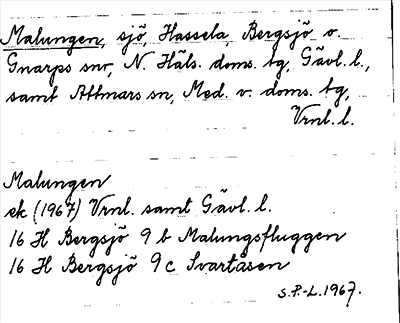 Malungen, sjö, Hassela, Bergsjö o.
Gnarps snr, N. Häls. doms. tg, Gävl. l.,
samt Attmars sn, Med. v. doms. tg,
Vrnl. l.
Malungen
ek (1967) Vrnl. samt Gävl. l.
16 H Bergsjö 9 b Malungsfluggen
16 H Bergsjö 9 c Svartåsen
S.P.-L. 1967.